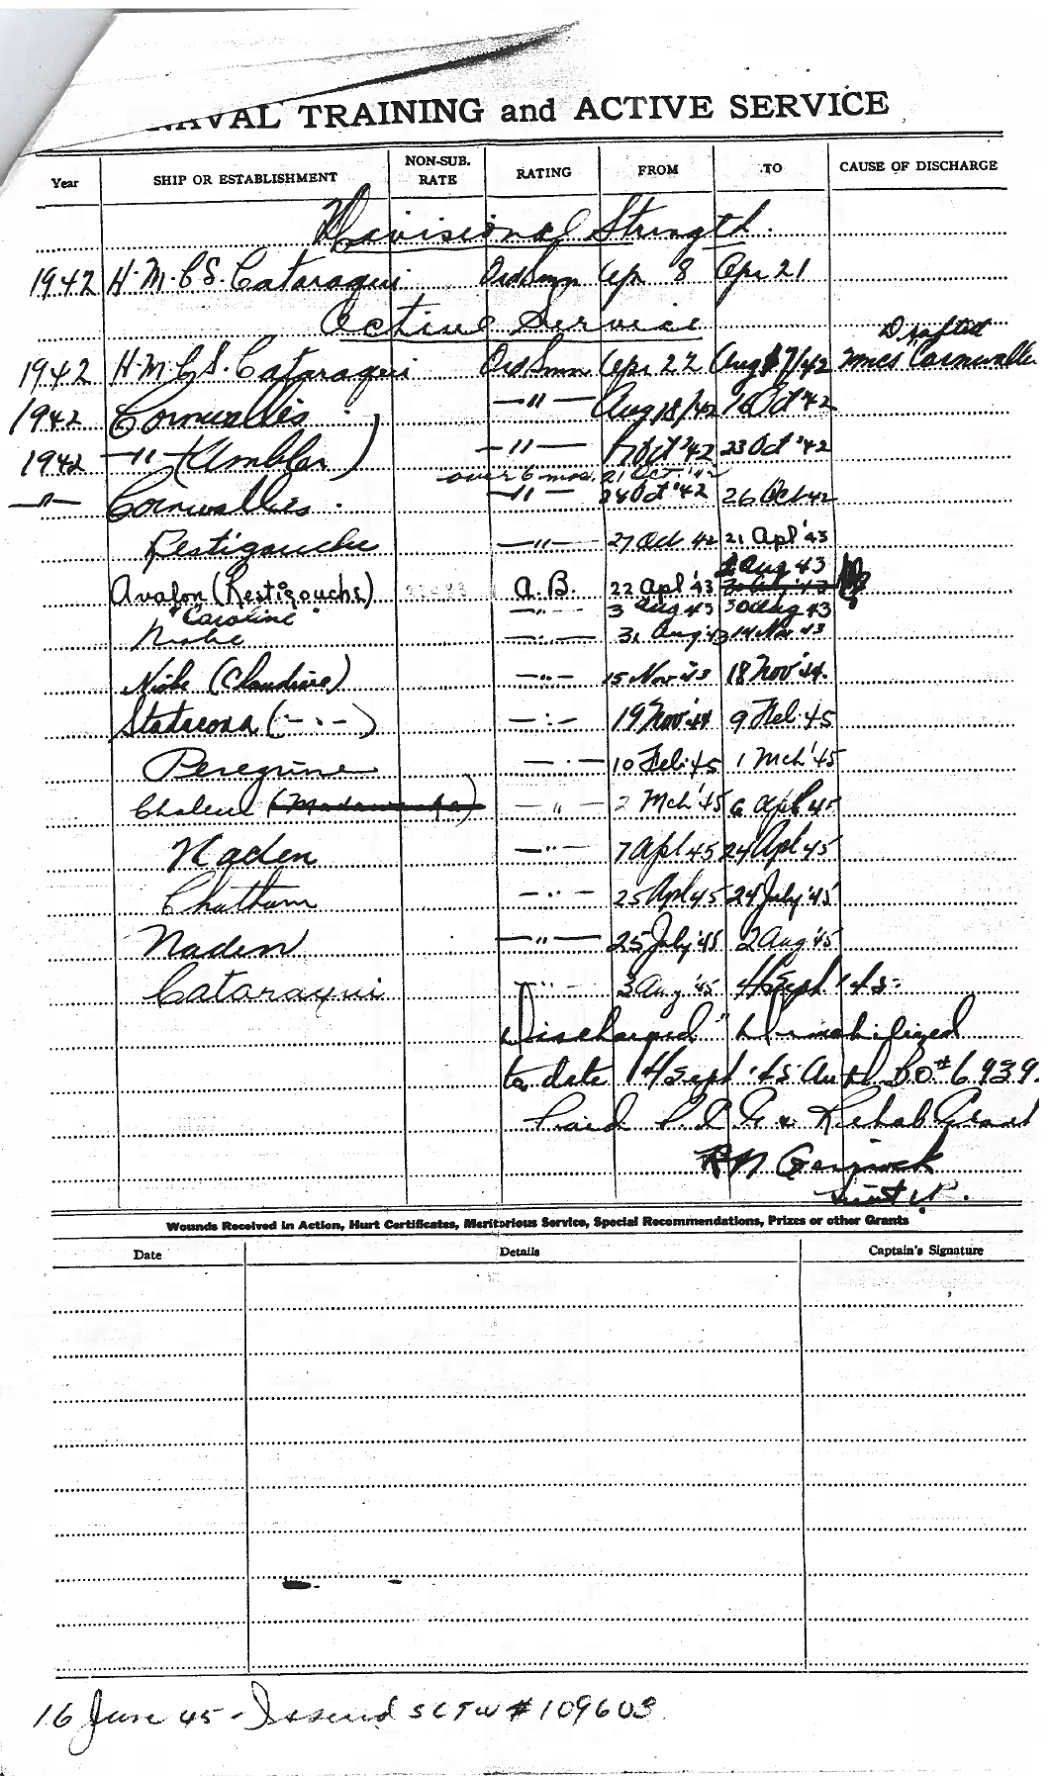 NAVAL TRAINING and ACTIVE SERVICE
Year SHIP OR ESTABLISHMENT NON-SUB. RATE RATING FROM TO CAUSE OF DISCHARGE
Divisional Strength.
1942 H.M.C.S. Cataraqui OrdSmn Apr 8 Apr 21
Active Service
Drafted
1942 H.M.C.S. Cataraqui OrdSmn Apr 22 Aug 17/42 HMCS Cornwallis
1942 Cornwallis —"— Aug 18/42 16 Oct '42
1942 —"— (Ambler) —"— 17 Oct '42 23 Oct '42
over 6 mos. 21 Oct. '42
—"— Cornwallis. —"— 24 Oct '42 26 Oct 42
Restigouche —"— 27 Oct 42 21 Apl '43
2 Aug 43
Avalon (Restigouche) A.B. 22 Apl '43
" Caroline —"— 3 Aug 43 30 Aug 43
Niobe —"— 31 Aug 43 14 Nov 43
Niobe (Claudine) —"— 15 Nov '43 18 Nov '44.
Stadacona (—"—) —"— 19 Nov '44 9 Feb. 45
Peregrine —"— 10 Feb. 45 1 Mch '45
Chaleur (Madawaska) —"— 2 Mch '45 6 Apl 45
Naden —"— 7 Apl 45 24 Apl 45
Chatham —"— 25 Apl 45 24 July '45
Naden —"— 25 July '45 2 Aug '45
Cataraqui —"— 3 Aug '45 14 Sept '45
Discharged "Demobilized
to date 14 Sept '45 Auth BO# 6939.
Paid Rehab Grant
Lieut
Wounds Received in Action, Hurt Certificates, Meritorious Service, Special Recommendations, Prizes or other Grants
Date Details Captain's Signature
16 June 45 - Issued SCTW # 109603